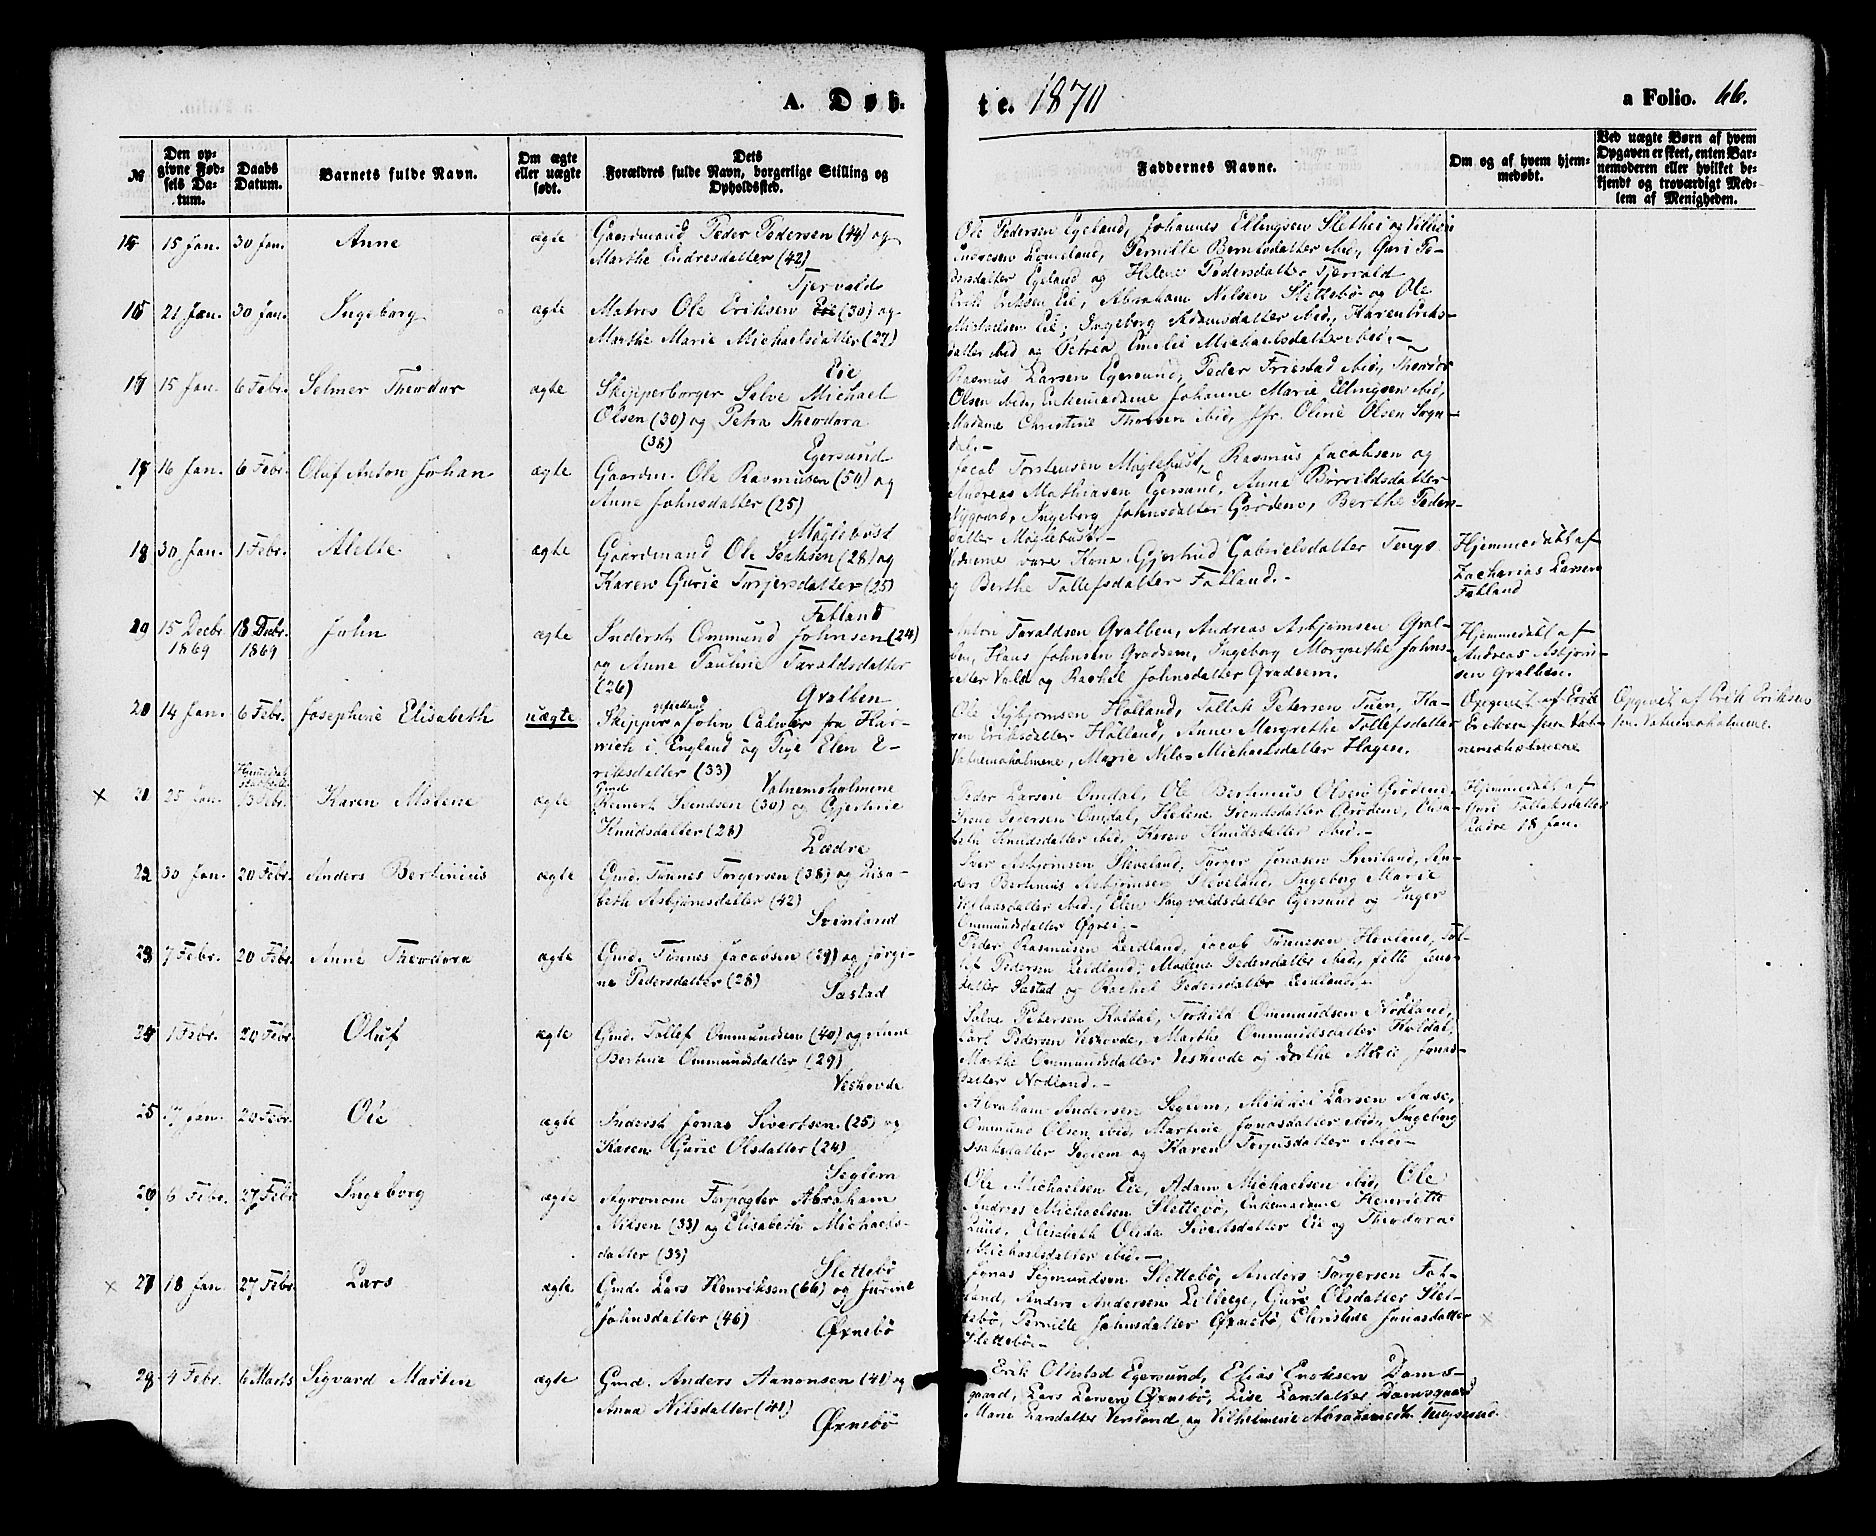 A. Døb-
te. 1870
a Folio. 66.
№
Den op-
givne Fød-
sels Da-
tum.
Daabs
Datum.
Barnets fulde Navn.
Om ægte
eller uægte
født.
Dets
Forældres fulde Navn, borgerlige Stilling og
Opholdssted.
Faddernes Navne.
Om og af hvem hjem-
medøbt.
Ved uægte Børn af hvem
Opgaven er skeet, enten Bar-
nemoderen eller hvilket be-
kjendt og troværdigt Med-
lem af Menigheden.
15 Jan. 30 Jan. Anne ægte
Gaardmand Peder Pedersen (44) og
Marthe Endresdatter (42)
Tjervald
Ole Pedersen Egeland, Johannes Ellingsen Slethei og
Lomeland, Pernille Berntsdatter ibid., Guri Pe-
dersdatter Egeland og Helene Pedersdatter Tjervald
21 Jan. 30 Jan. Ingeborg ægte
Matros Ole Eriksen Eie (30) og
Marthe Marie Michaelsdatter (27)
Eie
Erik Eriksen Eie, Abraham Nilsen Slettebø og Ole
Michaelsen Eie, Ingeborg Adamsdatter ibid., Karen Eriks-
datter ibid og Petrea Emelie Michaelsdatter ibid.-
15 Jan. 6 Febr. Selmer Theodor ægte
Skipperborger Salve Michael
Olsen (30) og Petra Theodora
(38)
Egersund
Rasmus Larsen Egersund, Peder Friestad ibid, Theodor
Olsen ibid, Enkemadame Johanne Marie Ellingsen ibid,
Madame Christine Thorsen ibid, Jfr. Oline Olsen Sogn-
dal.-
16 Jan. 6 Febr. Oluf Anton Johan ægte
Gaardm. Ole Rasmussen (50) og
Anne Johnsdatter (25)
Møglebust
Jacob Torstensen Møglebust, Rasmus Jacobsen og
Andreas Mathiasen Egersund, Anne Børrildsdatter
Nygaard, Ingeborg Johnsdatter Grødem, Berthe Peders-
datter Møglebust
18 30 Jan. 1 Febr. Alette ægte
Gaardmand Ole Isaksen (28) og
Karen Gurie Torjersdatter (25)
Fotland
Fadderne vare Kone Gjertrud Gabrielsdatter Tengs
og Berthe Tollefsdatter Fotland.-
Hjemmedøbt af
Zacharias Larsen
Fotland
19 15 Decbr. 18 Decbr. John ægte
1869 1869
Inderst Ommund Johnsen (24)
og Anne Pauline Taraldsdatter
(26)
Gralben
Taraldsen Gralben, Andreas Asbjørnsen Gral-
ben, Hans Johnsen Grødem, Ingeborg Margrethe Johns-
datter Vold og Rachel Johnsdatter Grødem.
Hjemmedøbt af
Andreas Asbjørn-
sen Gralben.
20 14 Jan. 6 Febr. Josephine Elisabeth uægte
Skipper John Calver fra Har-
wich i England og Pige Elen E-
riksdatter (33)
Vatnemoholmene
Ole Sigbjørnsen Hølland, Tollak Petersen Tuen, Ka-
ren Eriksdatter Hølland, Anne Mergrethe Tollefsdatter
Vatnemoholmene, Marie Nilo-Michaelsdatter Hagen.
Opgivet af Erik
Eriksen sen Vat-
nemoholmene
Opgivet af Erik Eriksen
sen. Vatnemoholmene.
× 21 25 Jan. 13 Febr. Karen Malene ægte
Gmd
Reinert Svendsen (30) og Gjertine
Knudsdatter (28)
Lædre
Peder Larsen Omdal, Ole Bertinius Olsen Grødem,
Pedersen Omdal, Helene Svendsdatter Grødem, Elisa-
beth Knudsdatter ibid, Karen Knudsdatter ibid.-
Hjemmedøbt af
Guri Tollaksdatter
Lædre 18 Jan.
22 30 Jan. 20 Febr. Anders Bertinius ægte
Gmd. Tønnes Torgersen (38) og Elisa-
beth Asbjørnsdatter (42)
Svinland
Iver Asbjørnsen Sleveland, Torger Jonasen Svinland, An-
ders Bertinius Asbjørnsen Sleveland, Ingeborg Marie
ibid., Elen Ingvaldsdatter Egersund og Inger
Ommundsdatter
23 7 Febr. 20 Febr. Anne Theodora ægte
Gmd. Tønnes Jacobsen (29) og Jørgi-
ne Pedersdatter (28)
Sæstad
Peder Rasmusen Leidland, Jacob Tønnesen Hovland, Tol-
lef Pedersen Leidland, Malene Pedersdatter ibid,
datter Sæstad og Rachel Pedersdatter Leidland.-
24 1 Febr. 20 Febr. Oluf ægte
Gmd. Tollef Ommundsen (40) og Anne
Bertine Ommundsdatter (29)
Veshovde
Salve Petersen Koldal, Torkild Ommundsen Nodland,
Carl Pedersen Veshovde, Marthe Ommundsdatter Koldal,
Marthe Ommundsdatter Veshovde og Dorthe Marie Jonas-
datter Nodland.-
25 17 Jan. 20 Febr. Ole ægte
Inderst Jonas Sivertsen (25) og
Karen Gurie Olsdatter (24)
Seglem
Abraham Andersen Seglem, Mikkel Larsen Aase,
Ommund Olsen ibid, Martine Jonasdatter ibid, Ingeborg
Isaksdatter Seglem og Karen Torjusdatter ibid.-
26 6 Febr. 27 Febr. Ingeborg ægte
Agronom Forpagter Abraham
Nilsen (33) og Elisabeth Michaels-
datter (33)
Slettebø
Ole Michaelsen Eie, Adam Michaelsen ibid, Ole
Andreas Michaelsen Slettebø, Enkemadame Henriette
Lund, Elisabeth Olida Sivertsdatter Eie og Theodora
Michaelsdatter ibid.-
× 27 18 Jan. 27 Febr. Lars ægte
Gmd. Lars Henriksen (66) og Jurine
Johnsdatter (46)
Øxnebø
Jonas Sigmundsen Slettebø, Anders Torgersen Fot-
land, Anders Andersen Lilleeie, Guro Olsdatter Slet-
tebø, Pernille Johnsdatter Øxnebø, Christine Jonasdatter ×
Slettebø.-
28 4 Febr. 6 Marts Sigvard Martin ægte
Gmd. Anders Aanonsen (41) og
Anna Nilsdatter (41)
Øxnebø
Erik Olestad Egersund, Elias Enoksen Dams-
gaard, Lars Larsen Øxnebø, Lise Larsdatter Damsgaard,
Marie Larsdatter og Vilhelmine Abrahamsdtr.